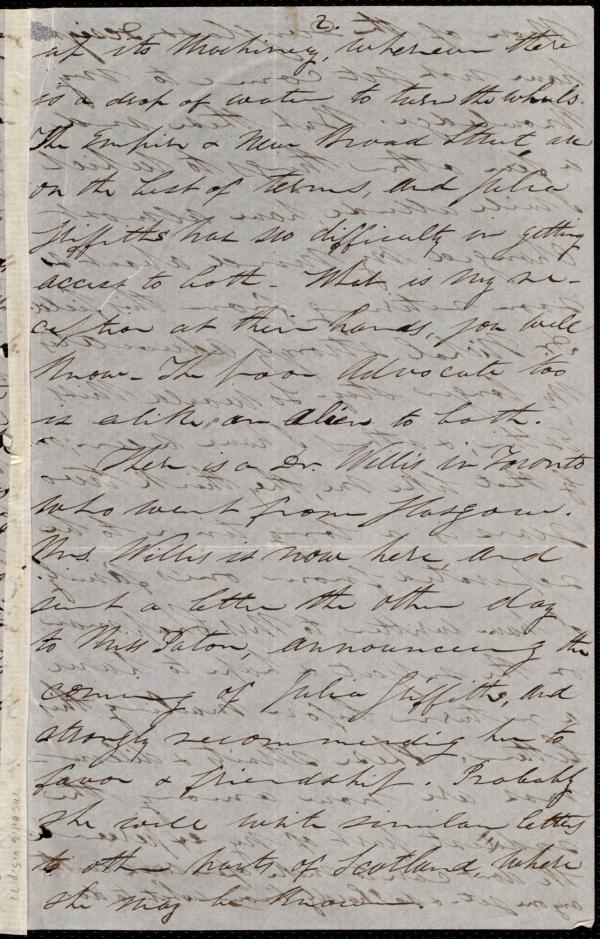 2.
up its Machinery, whenever there
is a drop of water to turn the wheels.
The Empire & New Broad Street are
on the best of terms, and Julia
Griffiths has no difficulty in getting
access to both - What is my re-
ception at their hands, you will
know - The poor Advocate too
is alike an alien to both.
There is a Dr. Willis in Toronto
who went from Glasgow.
Mrs. Willis is now here, and
sent a letter the other day
to Miss Paton, announcing the
coming of Julia Griffiths, and
strongly recommending her to
favor & friendship. Probably
she will write similar letters
to other parts of Scotland, where
she may be known.